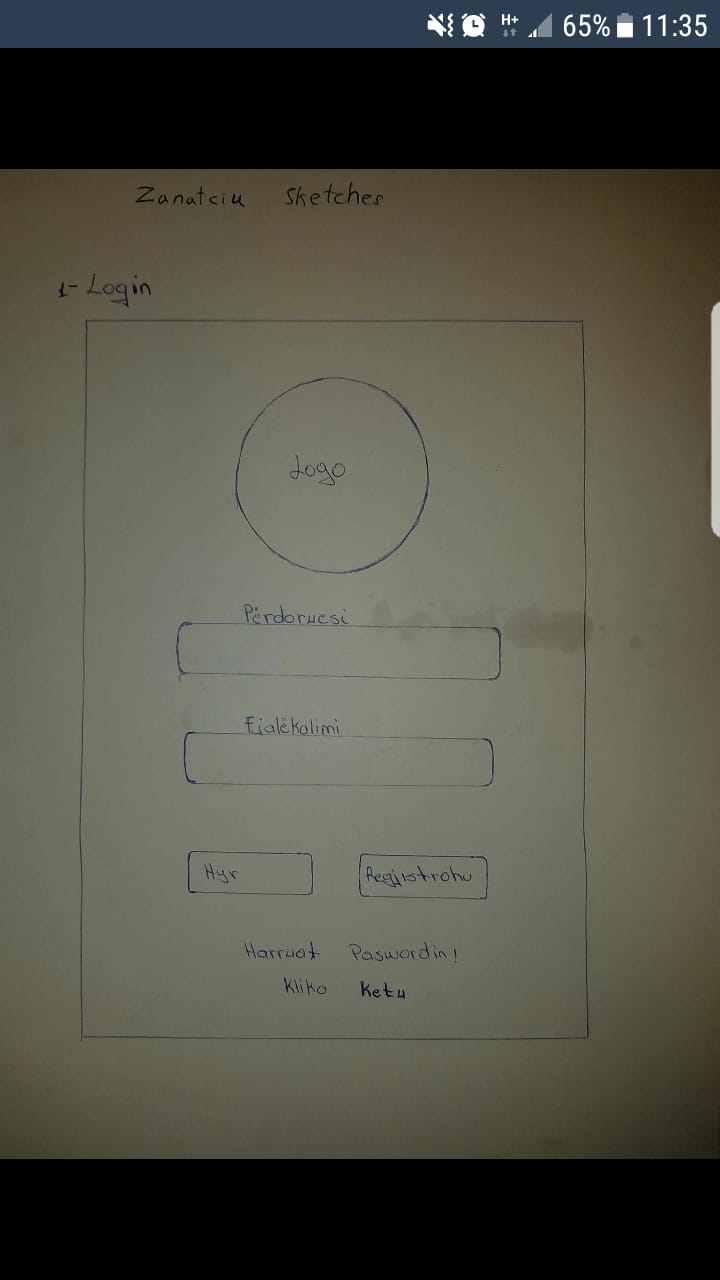 H+ 65% 11:35
Zanatciu Sketches
1- Login
Logo
Përdoruesi
Fjalëkalimi
Hyr Regjistrohu
Harruat Paswordin!
Kliko Ketu